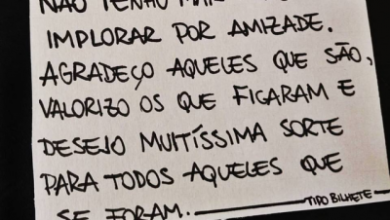 NÃO TENHO MAIS
IMPLORAR POR AMIZADE.
AGRADEÇO AQUELES QUE SÃO,
VALORIZO OS QUE FICARAM E
DESEJO MUITÍSSIMA SORTE
PARA TODOS AQUELES QUE
SE FORAM.
TIPO BILHETE